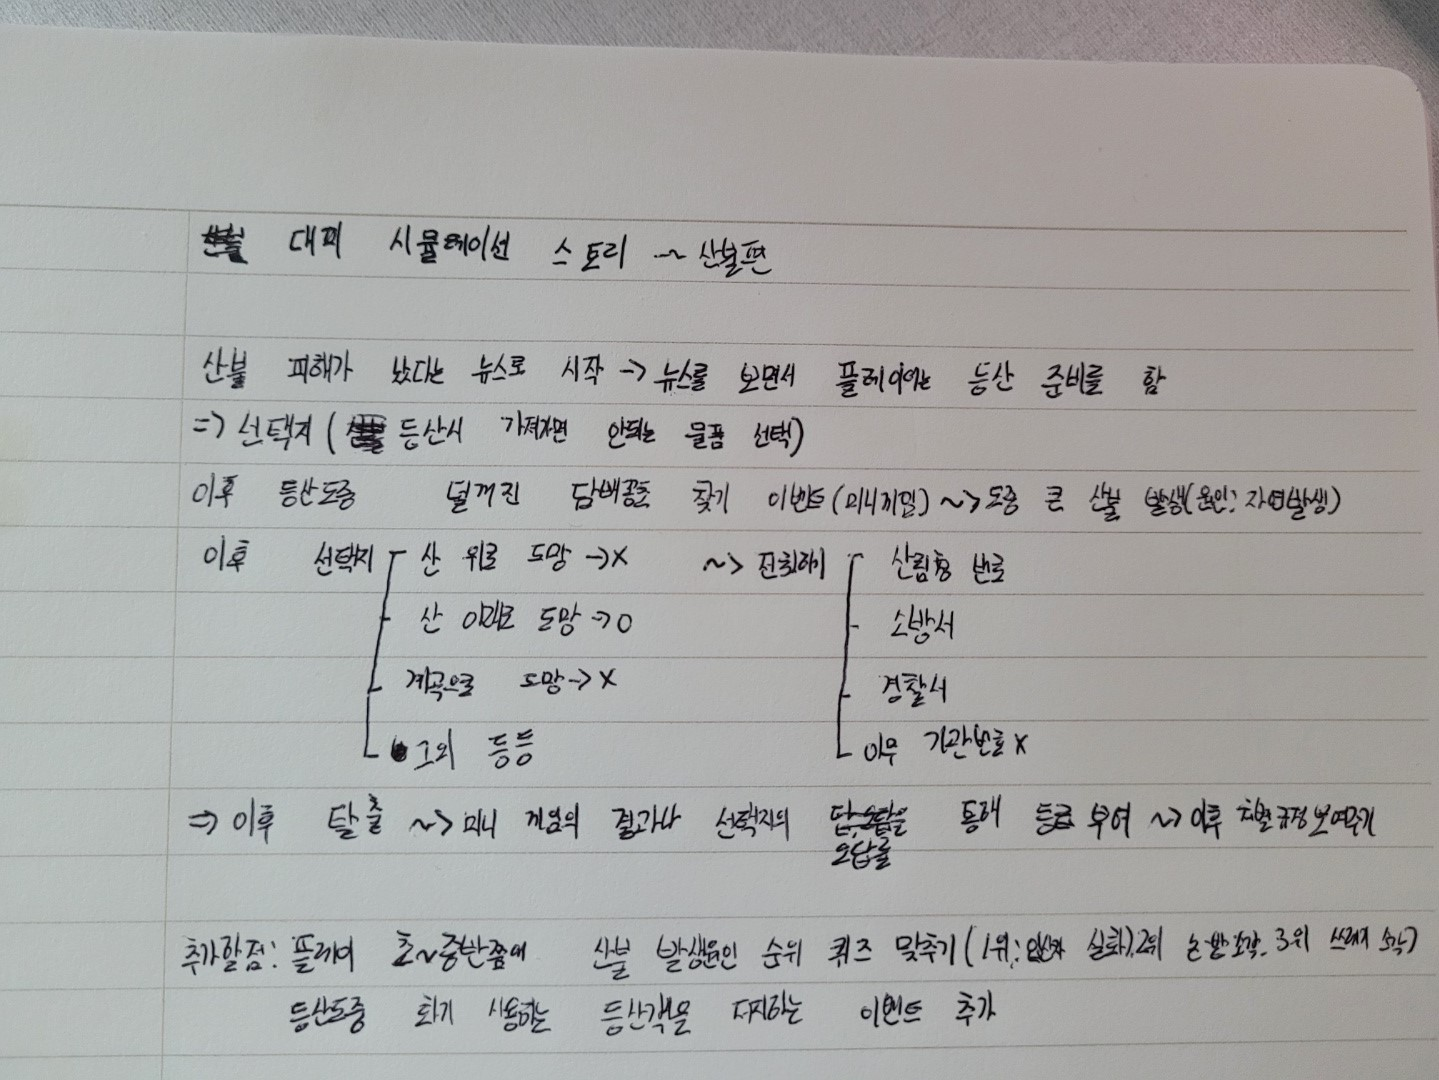 대피 시뮬레이션 스토리 ~ 산불편
산불 피해가 났다는 뉴스로 시작 → 뉴스를 보면서 플레이어는 등산 준비를 함
=> 선택지 ( 등산시 가져가면 안되는 물품 선택)
이후 등산도중 덜꺼진 담배꽁초 찾기 이벤트(미니게임) ~> 도중 큰 산불 발생(원인: 자연발생)
이후 선택지 산 위로 도망 → X ~> 전화하기 산림청 번호
산 아래로 도망 → O 소방서
계곡으로 도망 → X 경찰서
그외 등등 아무 기관번호 X
=> 이후 탈출 ~> 미니 게임의 결과나 선택지의 통해 등급 부여 ~> 이후 처벌규정 보여주기
오답률
추가할점: 플레이 초~중반쯤에 산불 발생원인 순위 퀴즈 맞추기 (1위: 입산자 실화, 2위 논밭소각, 3위 쓰레기 소각)
등산도중 화기 사용하는 등산객을 저지하는 이벤트 추가